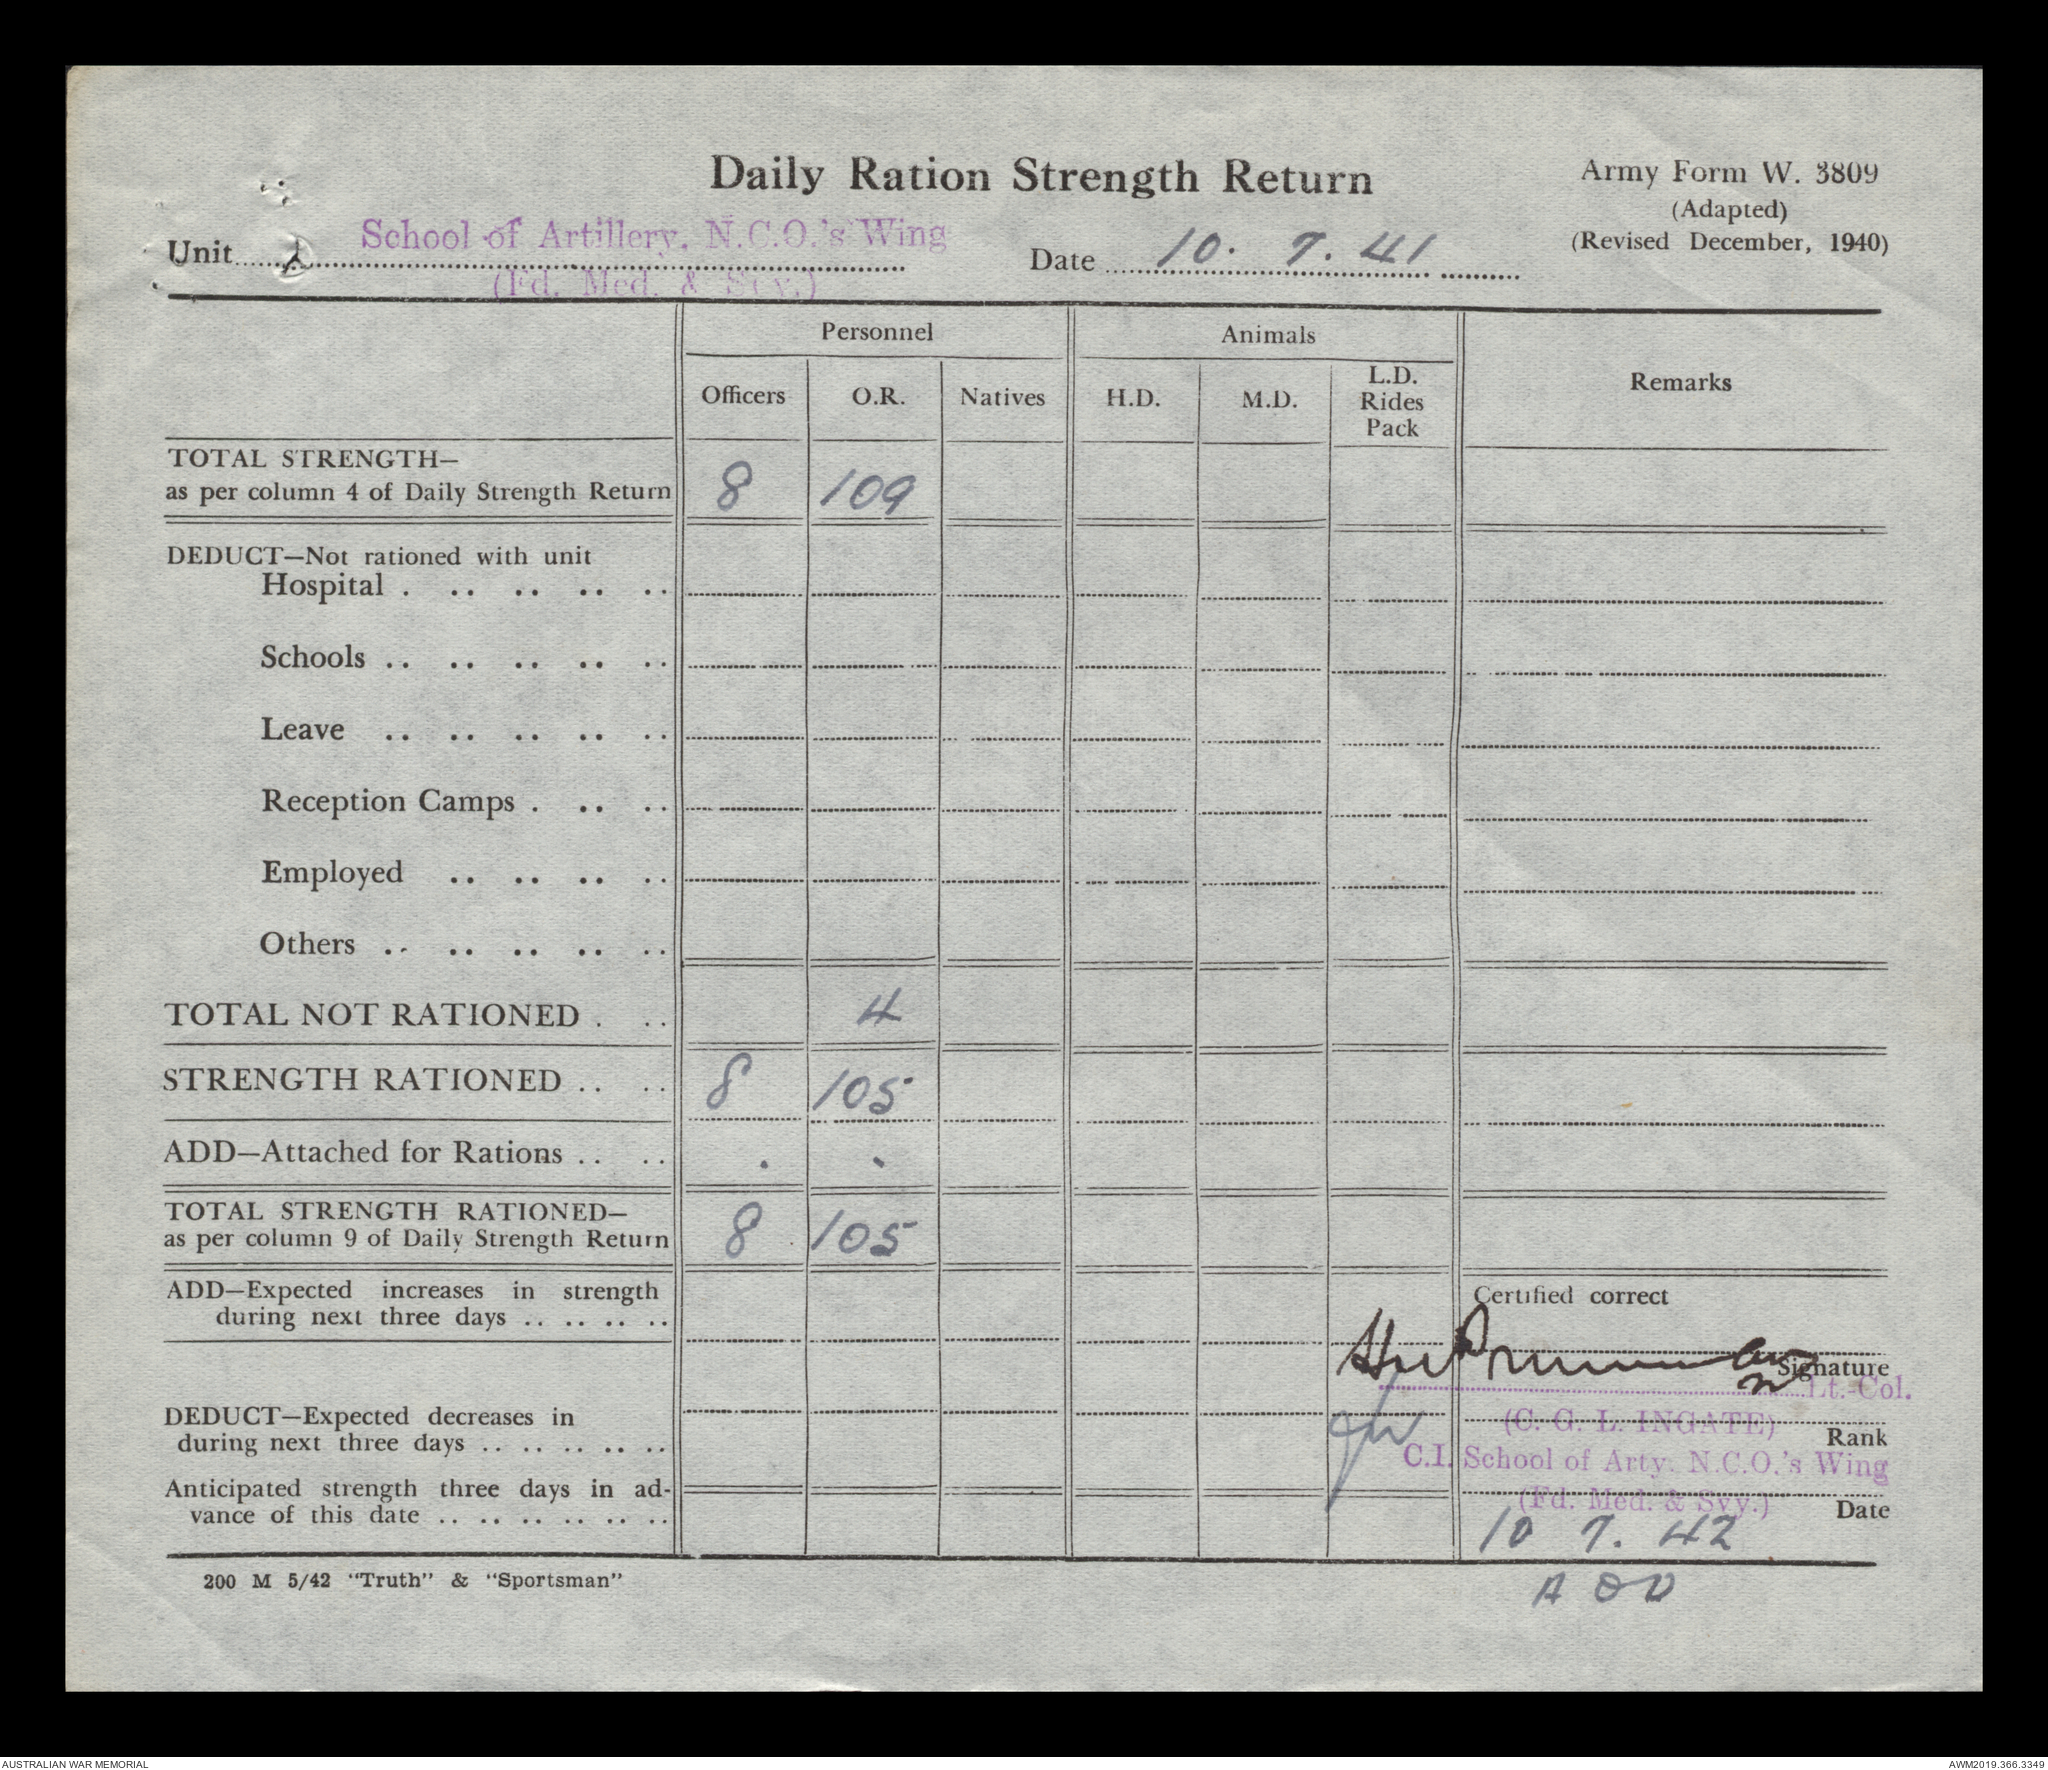 Daily Ration Strength Return
Army Form W. 3809
(Adapted)
(Revised December, 1940)
School of Artillery, N.C.O.'s Wing
Unit
(Fd. Med. & Svy.)
Date 10. 7. 41
Personnel
Animals
Remarks
Officers O.R. Natives H.D. M.D. L.D. Rides Pack
TOTAL STRENGTH—
as per column 4 of Daily Strength Return 8 109
DEDUCT—Not rationed with unit
Hospital . .. .. .. ..
Schools .. .. .. .. ..
Leave .. .. .. .. ..
Reception Camps . .. ..
Employed .. .. .. ..
Others .. .. .. .. ..
TOTAL NOT RATIONED . .. 4
STRENGTH RATIONED .. .. 8 105
ADD—Attached for Rations .. .. . .
TOTAL STRENGTH RATIONED—
as per column 9 of Daily Strength Return 8 105
ADD—Expected increases in strength
during next three days .. .. .. ..
Certified correct
Signature
Lt.-Col.
DEDUCT—Expected decreases in
during next three days .. .. .. .. ..
(C. G. L. INGATE)
Rank
C.I. School of Arty. N.C.O.'s Wing
(Fd. Med. & Svy.)
Date
Anticipated strength three days in ad-
vance of this date .. .. .. .. .. ..
10 7. 42
200 M 5/42 "Truth" & "Sportsman"
AUSTRALIAN WAR MEMORIAL
AWM2019.366.3349